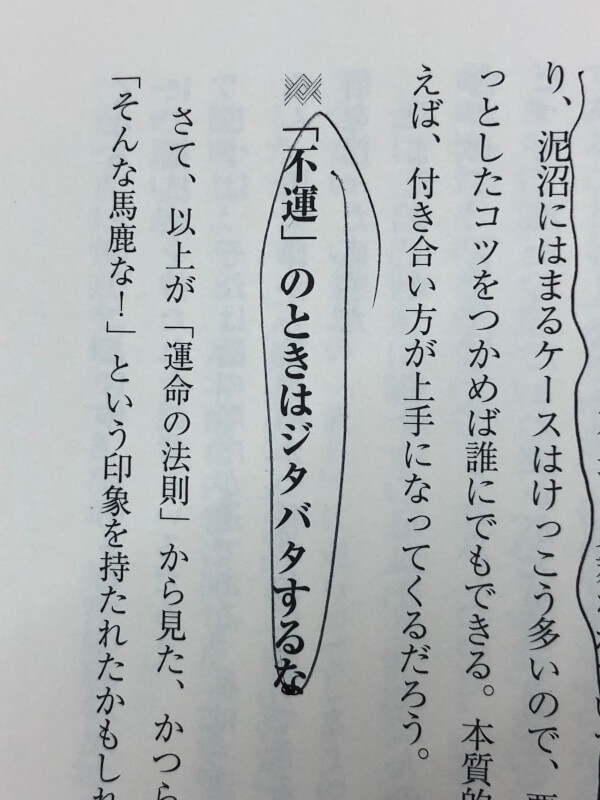 り、泥沼にはまるケースはけっこう多いので、
っとしたコツをつかめば誰にでもできる。本質的
えば、付き合い方が上手になってくるだろう。
「不運」のときはジタバタするな
さて、以上が「運命の法則」から見た、かつら
「そんな馬鹿な！」という印象を持たれたかもしれ